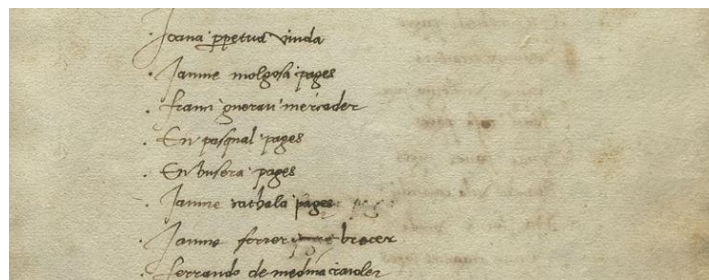 Joana ppetua viuda
Jaume molgosa pages
franci guerau mercader
En pasqual pages
En busera pages
Jaume cathala pages
Jaume ferrer brocer
ferrando de medina